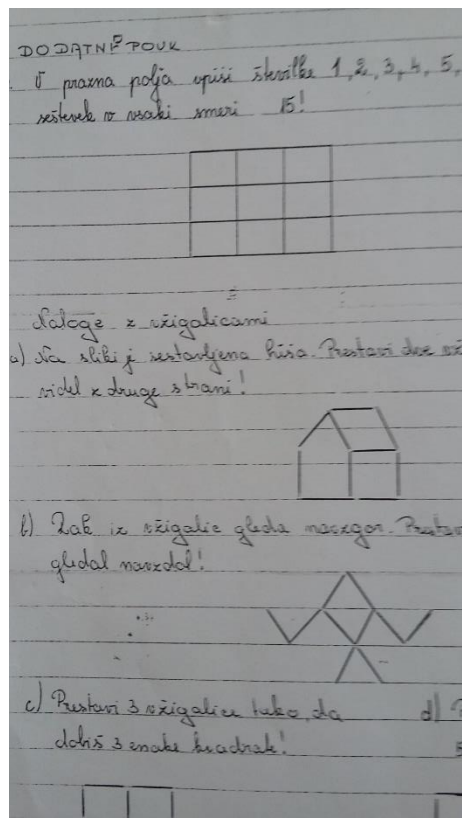 DODATNI POUK
V prazna polja vpiši številke 1, 2, 3, 4, 5,
seštevek v vsaki smeri 15!
Naloge z vžigalicami
a) Na sliki je sestavljena hiša. Prestavi dve
videl z druge strani!
b) Rak iz vžigalic gleda navzgor.
gledal navzdol!
c) Prestavi 3 vžigalice tako, da
dobiš 3 enake kvadrate!
d)